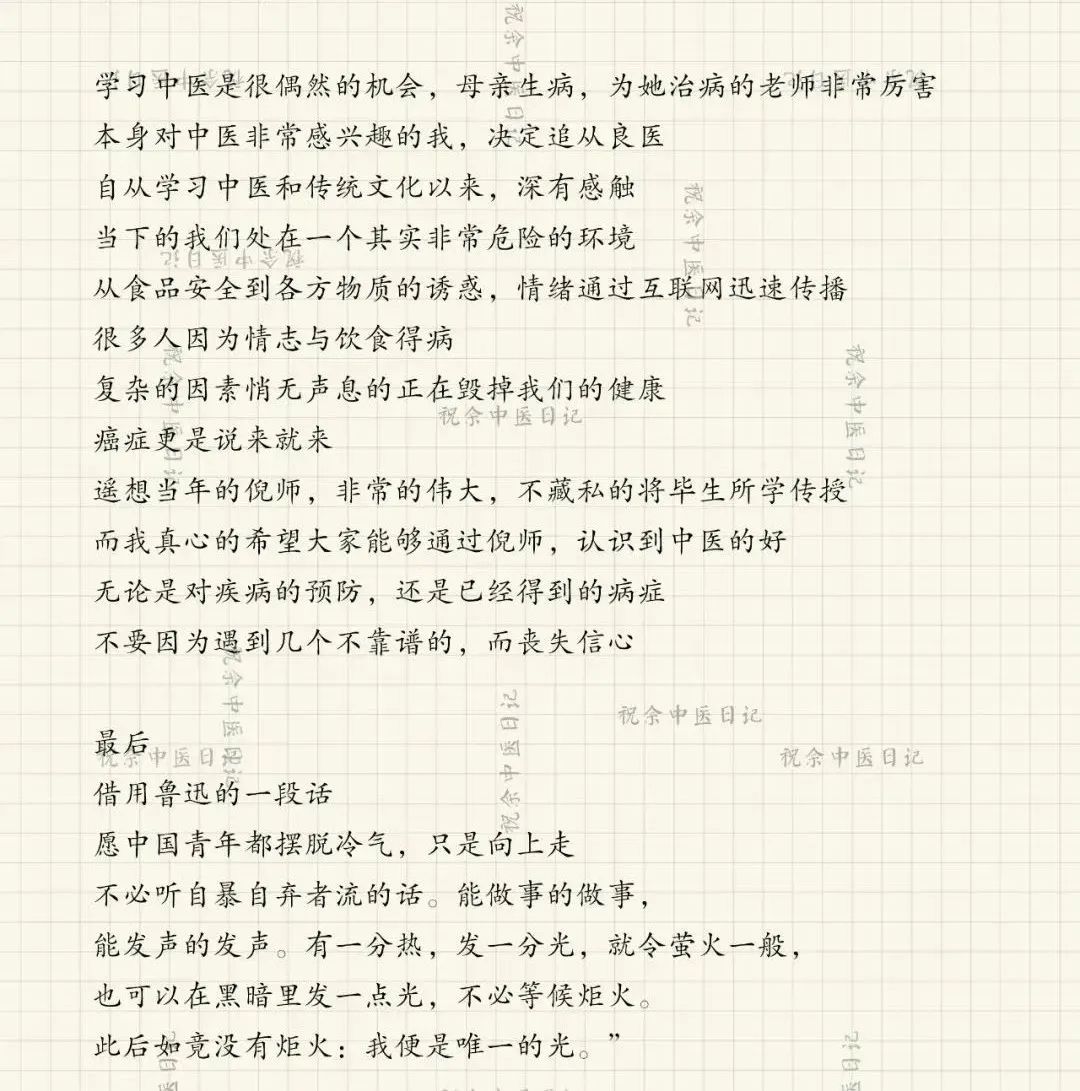 学习中医是很偶然的机会，母亲生病，为她治病的老师非常厉害
本身对中医非常感兴趣的我，决定追从良医
自从学习中医和传统文化以来，深有感触
当下的我们处在一个其实非常危险的环境
从食品安全到各方物质的诱惑，情绪通过互联网迅速传播
很多人因为情志与饮食得病
复杂的因素悄无声息的正在毁掉我们的健康
癌症更是说来就来
遥想当年的倪师，非常的伟大，不藏私的将毕生所学传授
而我真心的希望大家能够通过倪师，认识到中医的好
无论是对疾病的预防，还是已经得到的病症
不要因为遇到几个不靠谱的，而丧失信心
最后
借用鲁迅的一段话
愿中国青年都摆脱冷气，只是向上走
不必听自暴自弃者流的话。能做事的做事，
能发声的发声。有一分热，发一分光，就令萤火一般，
也可以在黑暗里发一点光，不必等候炬火。
此后如竟没有炬火：我便是唯一的光。”
祝余中医日记
祝余中医日记
祝余中医日记
祝余中医日记
祝余中医日记
祝余中医日记
祝余中医日记
祝余中医日记
祝余中医日记
祝余中医日记